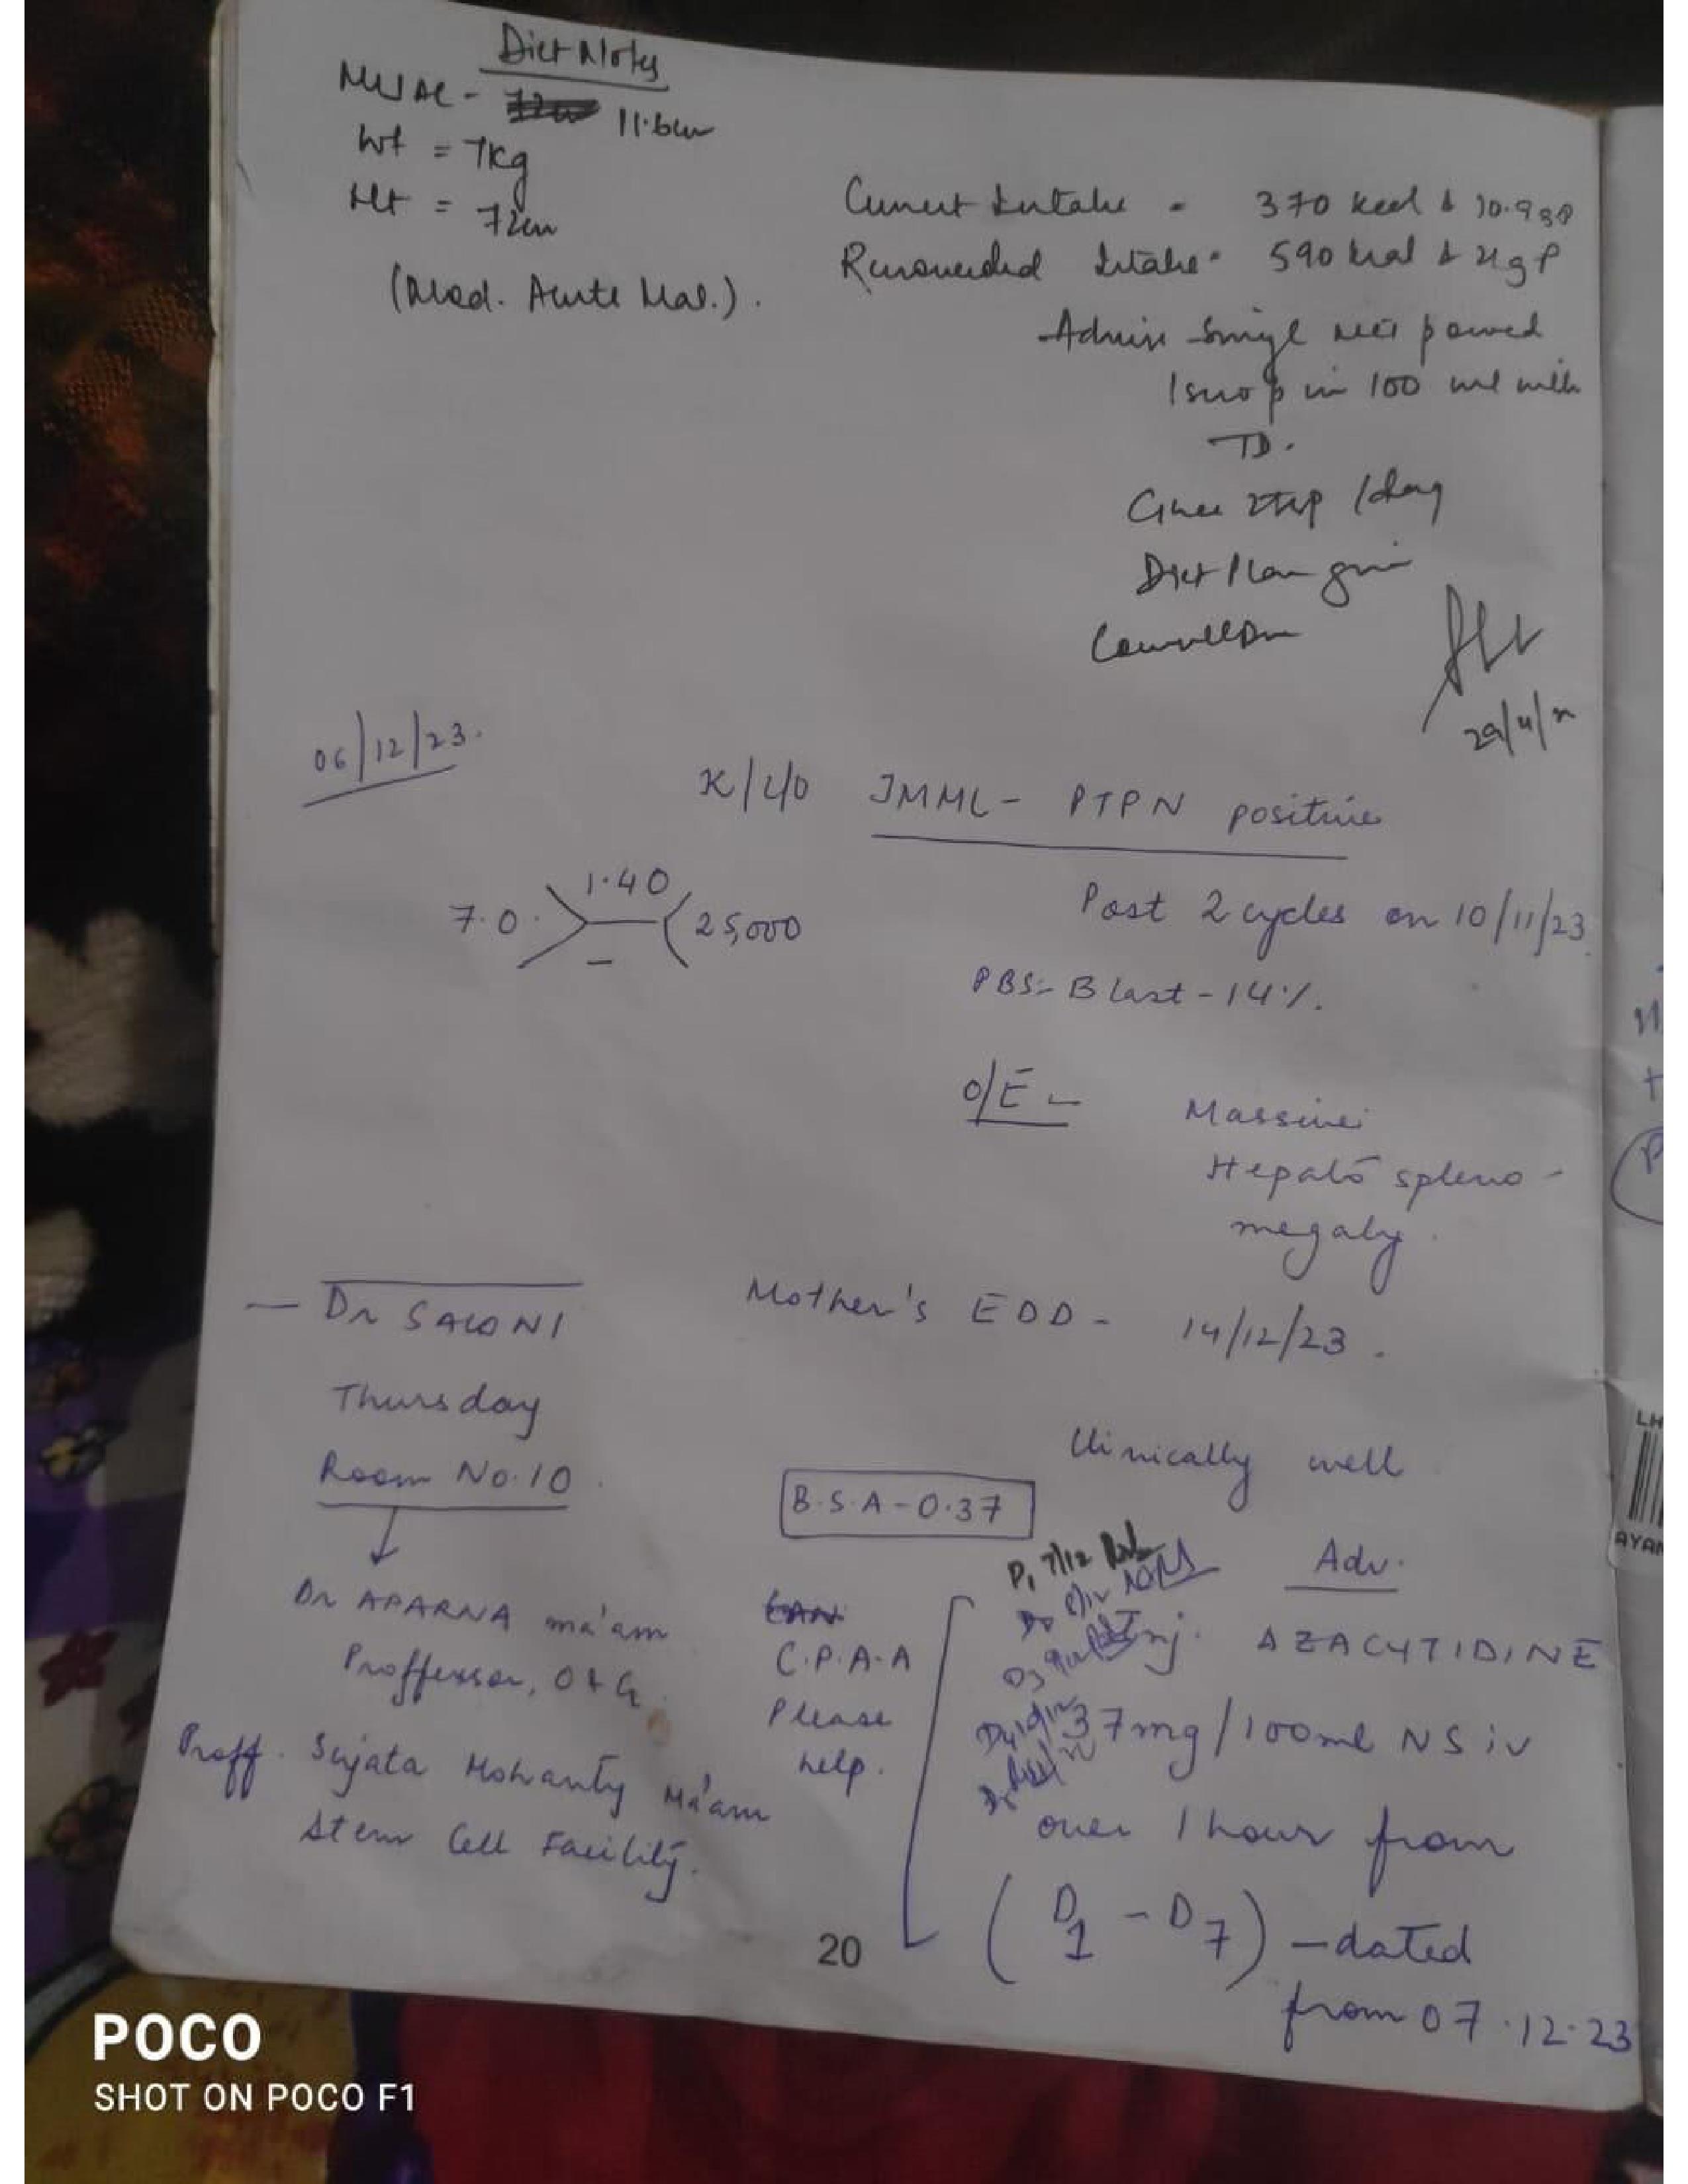 Diet Notes
MUAC - 11.6cm
Wt = 7kg
Ht = 72cm
(Mod. Acute Mal.).
Current Intake - 370 kcal & 10.9gP
Recommended Intake - 590 kcal & 21gP
Advise
1 scoop in 100 ml milk
TD.
Ghee 2tsp /day
Diet Plan given
Counselled
06/12/23.
K/C/O JMML - PTPN positive
7.0 1.40 25,000
-
Post 2 cycles on 10/11/23
PBS:- Blast - 14%.
O/E -
Massive
Hepato spleno-
megaly.
Mother's EDD - 14/12/23.
- Dr SALONI
Thursday
Room No. 10.
Dr APARNA ma'am
Proffessor, O & G.
Proff. Sujata Mohanty Ma'am
Stem Cell Facility.
Clinically well
B.S.A - 0.37
C.P.A.A
Please
help.
Adv.
D1 7/12
Inj. AZACYTIDINE
37mg/100ml NS iv
over 1 hour from
(D1 - D7) - dated
from 07.12.23
20
LH
AYAN
POCO
SHOT ON POCO F1